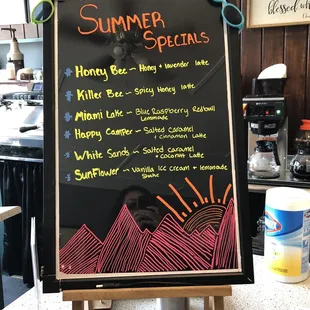 Summer
Specials
Honey Bee ~ Honey + lavender latte
Killer Bee ~ Spicy Honey latte
Miami Lake ~ Blue Raspberry Redbull
Lemonade
Happy Camper ~ Salted Caramel
+ cinnamon Latte
White Sands ~ Salted caramel
+ coconut Latte
Sunflower ~ Vanilla Ice cream + lemonade
Shake
blessed